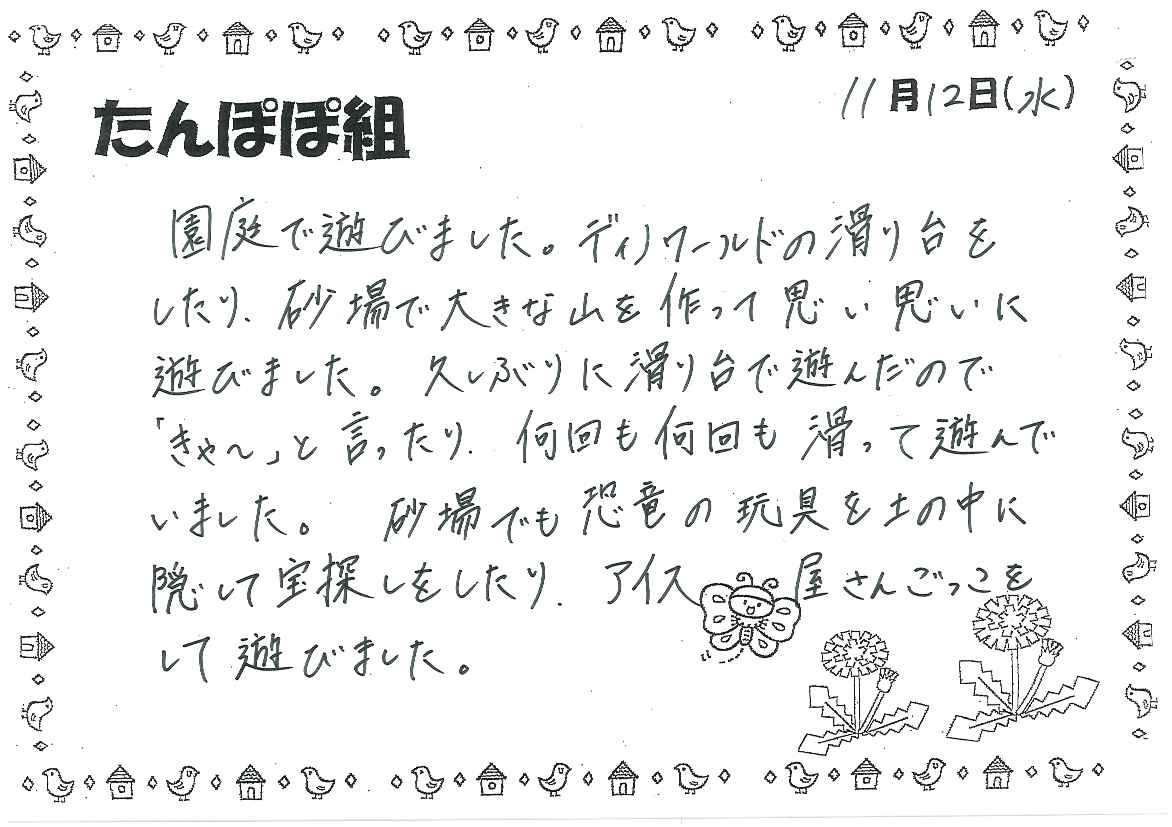 たんぽぽ組
11月12日(水)
園庭で遊びました。ディノワールドの滑り台を
したり、砂場で大きな山を作って思い思いに
遊びました。久しぶりに滑り台で遊んだので
「きゃ〜」と言ったり、何回も何回も滑って遊んで
いました。砂場でも恐竜の玩具を土の中に
隠して宝探しをしたり、アイス屋さんごっこを
して遊びました。